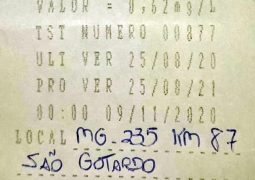 VALOR = 0,62mg/L
TST NUMERO 00877
ULT VER 25/08/20
PRO VER 25/08/21
00:00 09/11/2020
LOCAL MG-235 KM 87
SÃO GOTARDO